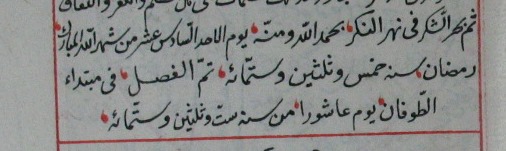 ثم نهر الشكر في نهر النكر بحمد الله ومنه يوم الاحد السادس عشر من شهر الله المبارك
رمضان سنه خمس وثلثين وستمائه تم الفصل في مبتداء
الطوفان يوم عاشورا من سنه ست وثلثين وستمائه